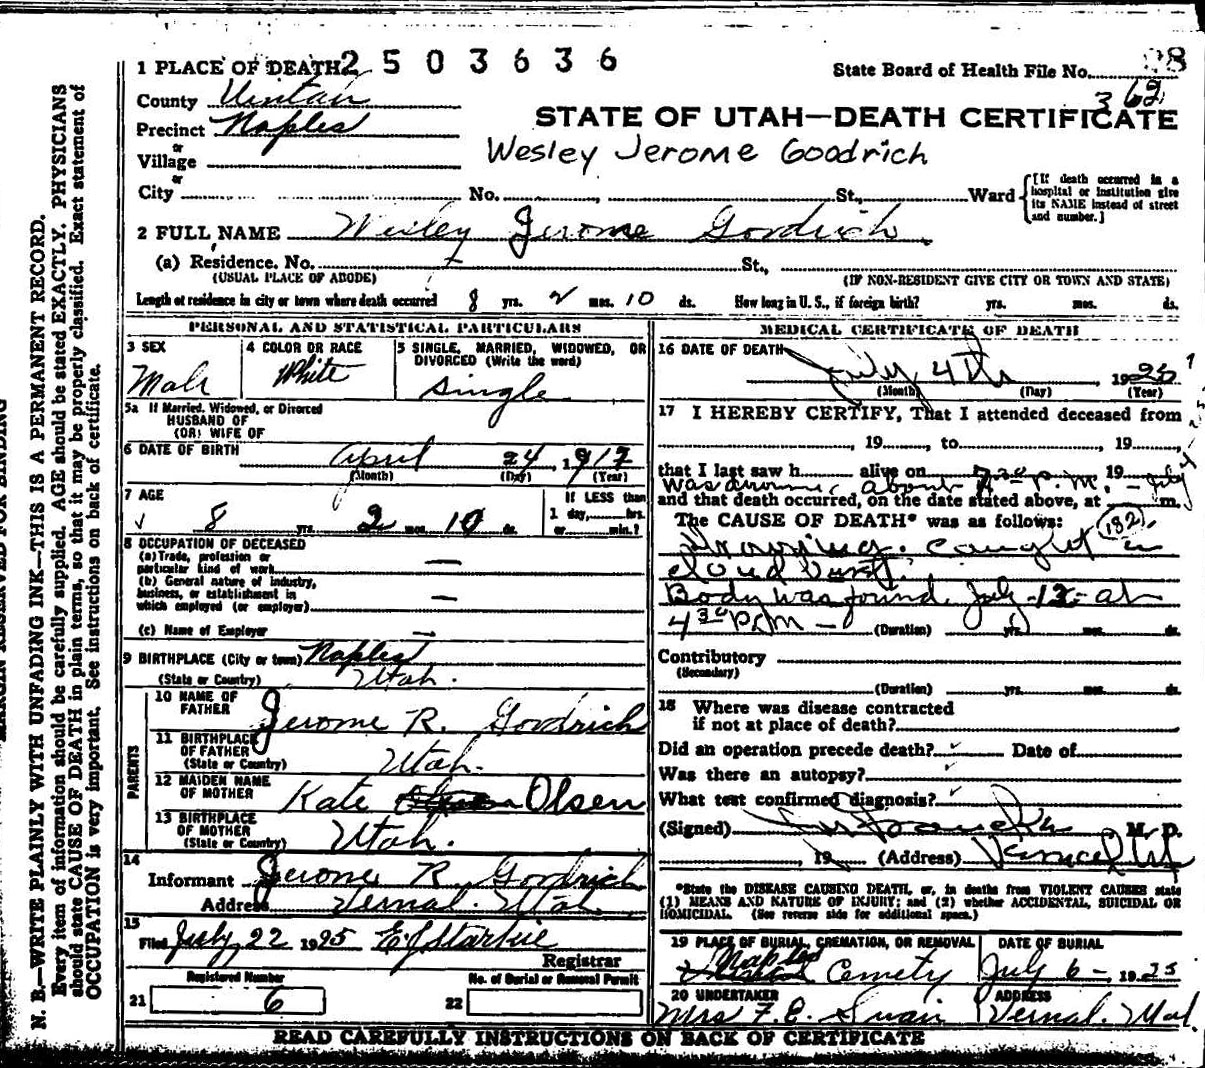 1 PLACE OF DEATH 2 5 0 3 6 3 6
State Board of Health File No. 98
362
County Uintah
STATE OF UTAH—DEATH CERTIFICATE
Precinct Naples
or
Village
Wesley Jerome Goodrich
or
City No. St., Ward
[If death occurred in a hospital or institution give its NAME instead of street and number.]
2 FULL NAME Wesley Jerome Goodrich
(a) Residence. No. St.,
(USUAL PLACE OF ABODE) (IF NON-RESIDENT GIVE CITY OR TOWN AND STATE)
Length of residence in city or town where death occurred 8 yrs. 2 mos. 10 ds. How long in U. S., if foreign birth? yrs. mos. ds.
PERSONAL AND STATISTICAL PARTICULARS
3 SEX
Male
4 COLOR OR RACE
White
5 SINGLE, MARRIED, WIDOWED, OR
DIVORCED (Write the word)
Single
5a If Married, Widowed, or Divorced
HUSBAND OF
(OR) WIFE OF
6 DATE OF BIRTH April 24, 1917
(Month) (Day) (Year)
7 AGE
8 yrs. 2 mos. 10 ds.
If LESS than
1 day, hrs.
or min.?
8 OCCUPATION OF DECEASED
(a) Trade, profession or
particular kind of work —
(b) General nature of industry,
business, or establishment in
which employed (or employer) —
(c) Name of Employer —
9 BIRTHPLACE (City or town) Naples
(State or Country) Utah.
PARENTS
10 NAME OF
FATHER Jerome R. Goodrich
11 BIRTHPLACE
OF FATHER
(State or Country) Utah.
12 MAIDEN NAME
OF MOTHER Kate Olsen
13 BIRTHPLACE
OF MOTHER
(State or Country) Utah.
14
Informant Jerome R. Goodrich
Address Vernal, Utah.
15
Filed July 22 1925
Registrar
Registered Number
21 6
No. of Burial or Removal Permit
22
MEDICAL CERTIFICATE OF DEATH
16 DATE OF DEATH
July 4th, 1925
(Month) (Day) (Year)
17 I HEREBY CERTIFY, That I attended deceased from
, 19 , to , 19 ,
that I last saw h alive on 19
was about P.M. - July 4
and that death occurred, on the date stated above, at m.
The CAUSE OF DEATH* was as follows:
182
Drowning. Caught in
cloud burst.
Body was found July-12- at
4 30 P.M - (Duration) yrs. mos. ds.
Contributory
(Secondary)
(Duration) yrs. mos. ds.
18 Where was disease contracted
if not at place of death?
Did an operation precede death? Date of
Was there an autopsy?
What test confirmed diagnosis?
(Signed) M. D.
, 19 (Address) Vernal Ut
*State the DISEASE CAUSING DEATH, or, in deaths from VIOLENT CAUSES state
(1) MEANS AND NATURE OF INJURY; and (2) whether ACCIDENTAL, SUICIDAL OR
HOMICIDAL. (See reverse side for additional space.)
19 PLACE OF BURIAL, CREMATION, OR REMOVAL
Naples Cemety
DATE OF BURIAL
July 6 - 1925
20 UNDERTAKER
Mrs F. E. Swain
ADDRESS
Vernal. Utah.
READ CAREFULLY INSTRUCTIONS ON BACK OF CERTIFICATE
MARGIN RESERVED FOR BINDING
N. B.—WRITE PLAINLY WITH UNFADING INK—THIS IS A PERMANENT RECORD.
Every item of information should be carefully supplied. AGE should be stated EXACTLY. PHYSICIANS
should state CAUSE OF DEATH in plain terms, so that it may be properly classified. Exact statement of
OCCUPATION is very important. See instructions on back of certificate.